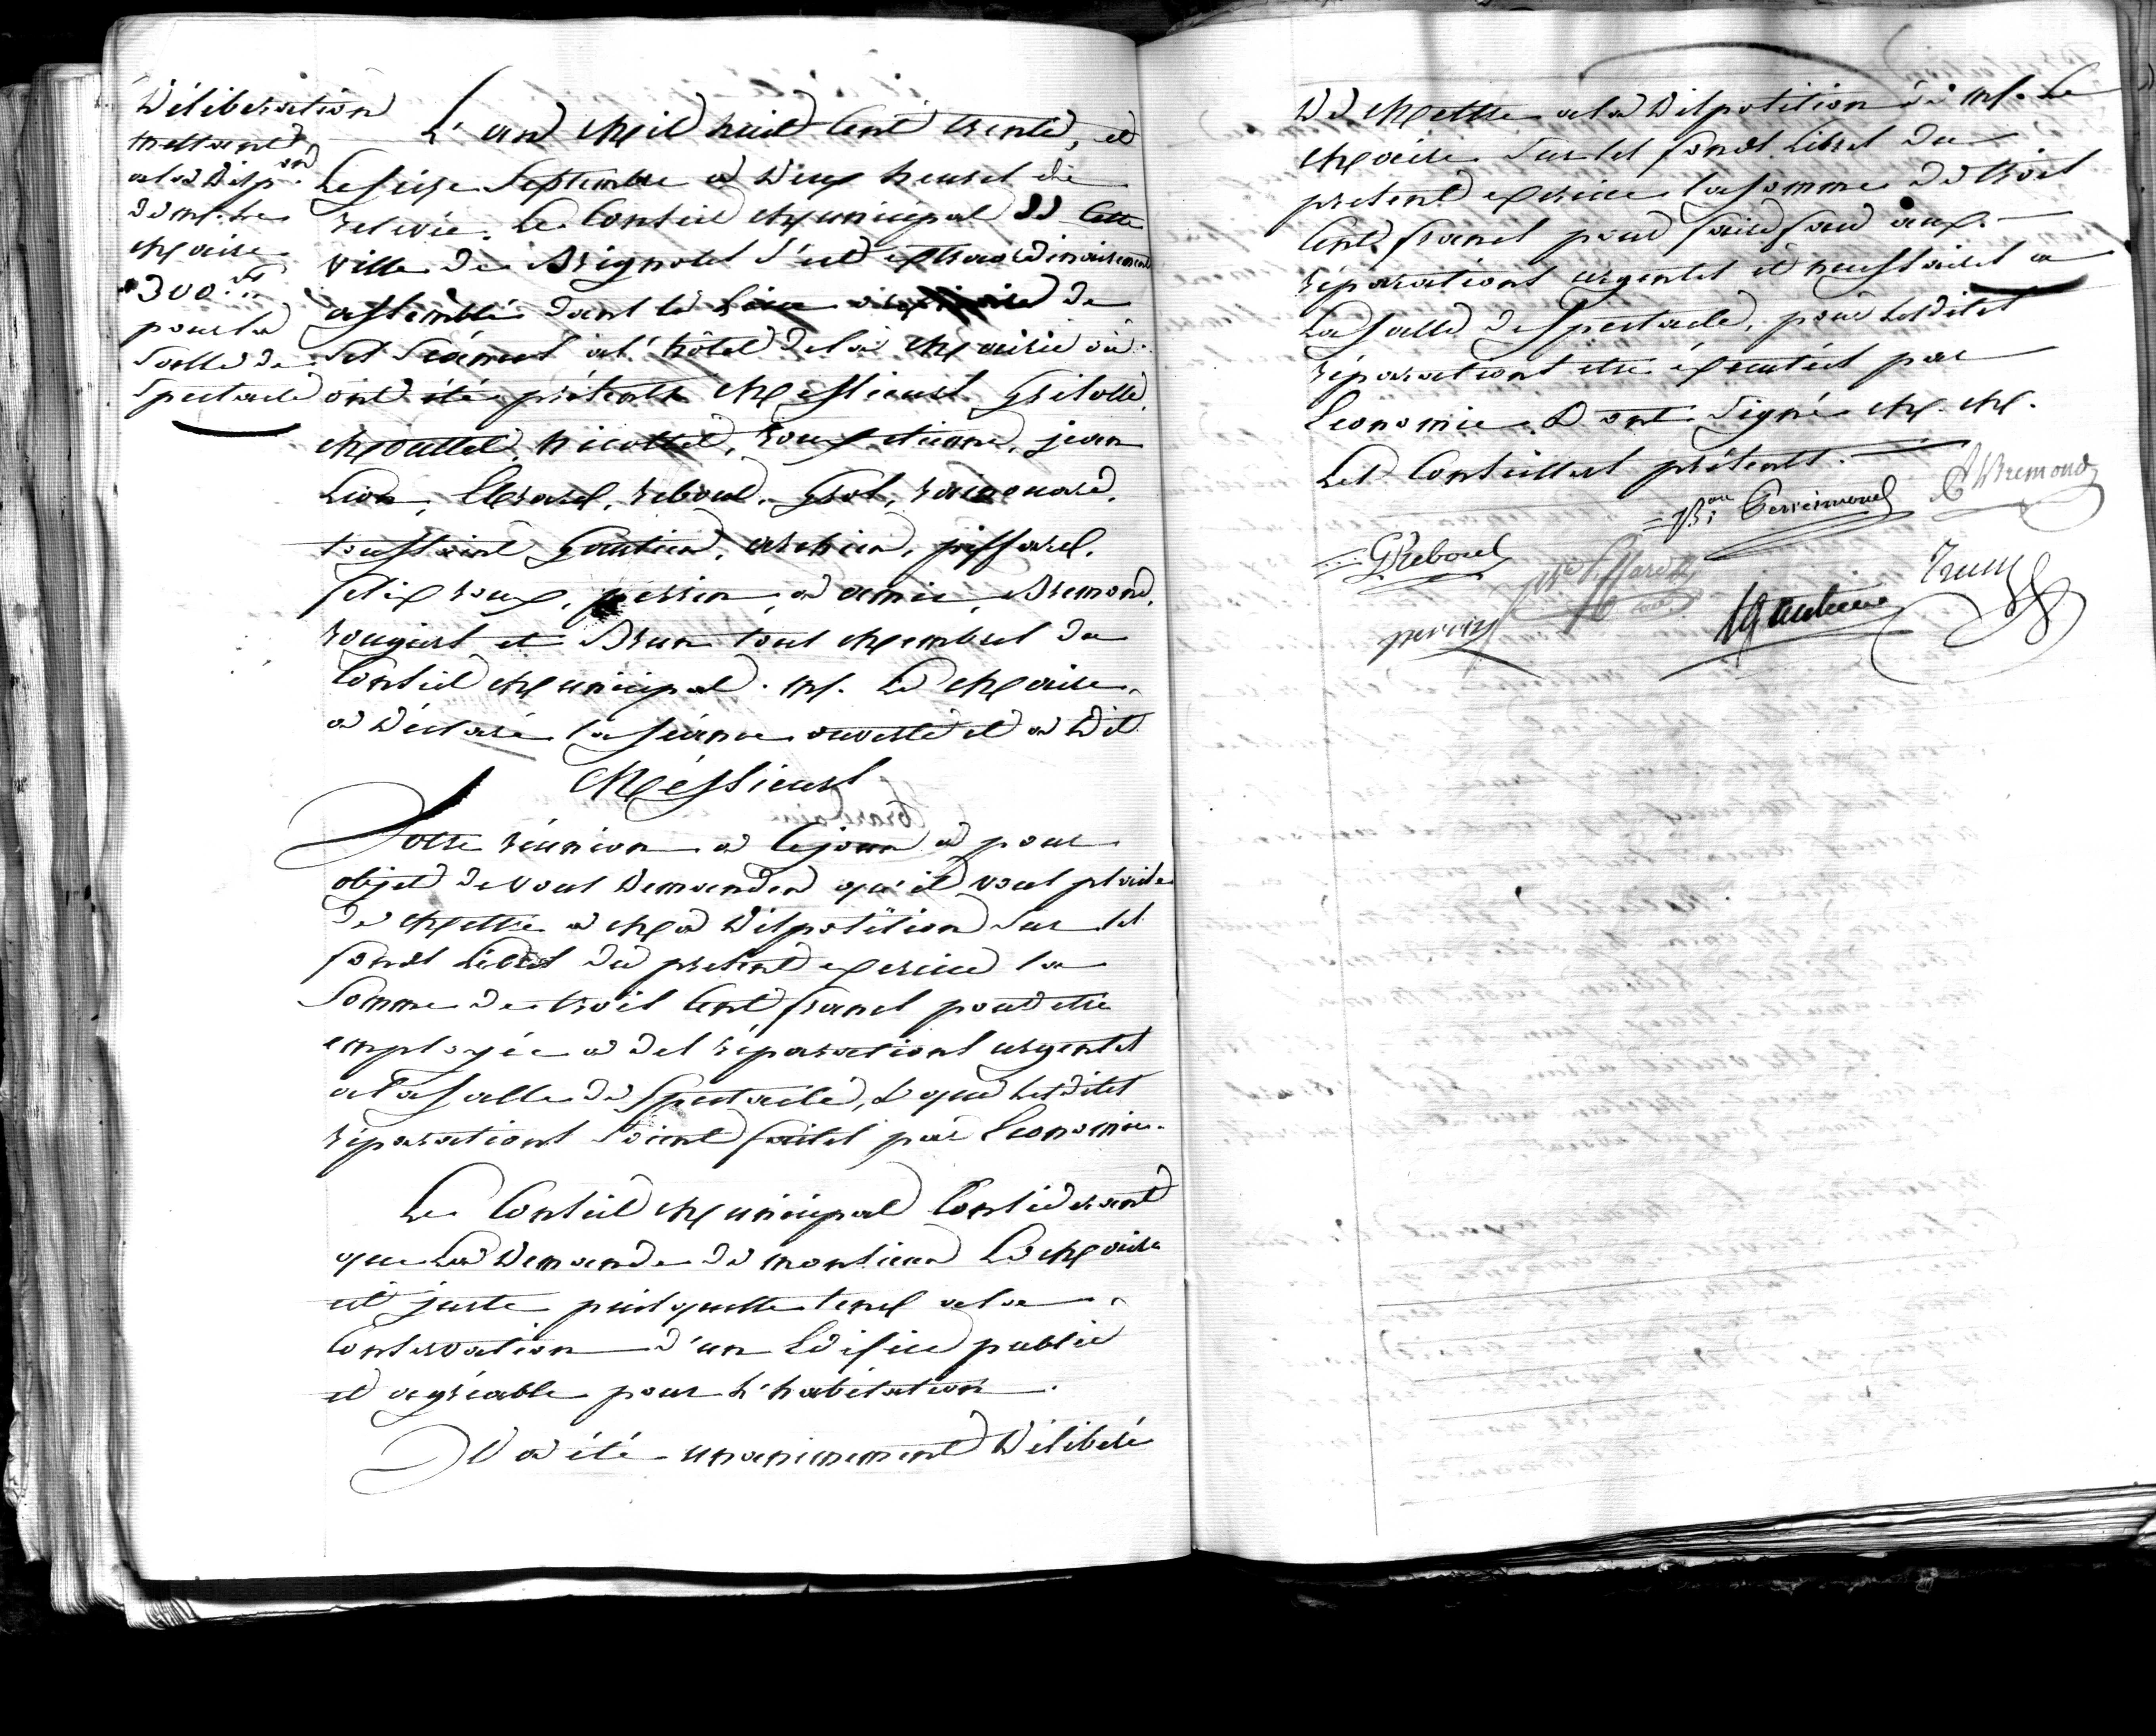 Déliberation
mettant
a la disp.on
de mr. Le
Maire
300 f.
pour la
Salle de
Spectacle
L'an Mil huit Cent trente, et
Le seize Septembre a deux heures de
relevée. Le Conseil Municipal de Cette
Ville de Brignoles s'est extraordinairement
assemblé dans le Lieu de
Ses Séances a l'hôtel de la Mairie où
ont été présents Messieurs Grisolle,
Mouttet, Nicollet, roux etienne, jean
Lion, Ebrard, reboul, Gros, raynouard,
toussaint Gautier, archier, piffard,
felix roux, perrin, damic, Bremond,
rougiers, et Brun tous Membres du
Conseil Municipal. mr. Le Maire
a déclaré la séance ouverte et a dit
Messieurs
Votre réunion a Ce jour a pour
objet de vous demander qu'il vous plaise
de Mettre a Ma disposition sur les
fonds Libres du present exercice la
Somme de trois Cent francs pour etre
employée a des réparations urgentes
a la salle de Spectacle, & que Lesdites
réparations Soient faites par Economie.
Le Conseil Municipal Considerant
que La demande de monsieur Le Maire
est juste puisquelle tend a la
Conservation d'un Edifice public
et agréable pour L'habitation.
Il a été unanimement délibéré
De Mettre a la disposition de mr. Le
Maire sur les fonds Libres du
present exercice la somme de trois
Cent francs pour faire face aux
réparations urgentes et necessaires a
La salle de Spectacle, pour Lesdites
réparations etre éxecutées par
Economie. & ont Signé M. M.
Les Conseillers présents.
Bremond
GReboul
Piffard
perrin
Gautier